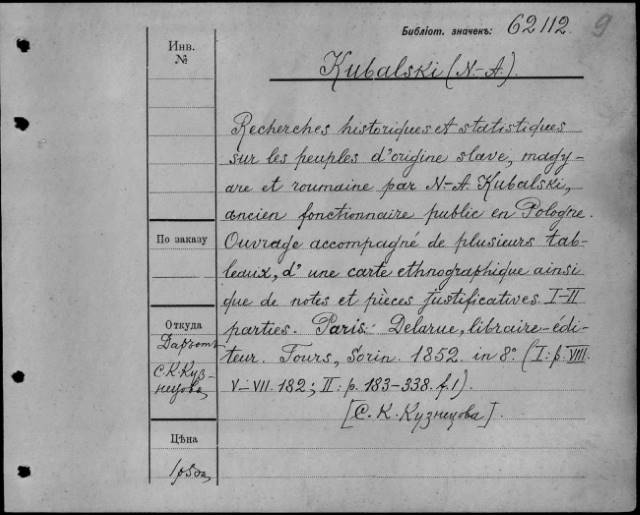 Библіот. значекъ: 62112. 9
Инв.
№
Kubalski (N-A).
Recherches historiques et statistiques
sur les peuples d'origine slave, magy-
are et roumaine par N-A Kubalski,
ancien fonctionnaire public en Pologne.
По заказу
Ouvrage accompagné de plusieurs tab-
leaux, d'une carte ethnographique ainsi
que de notes et pièces justificatives I-II
Откуда
parties. Paris: Delarue, libraire-édi-
teur. Tours, Sorin. 1852. in 8° (I: p. VIII.
С. К. Куз-
нецова,
V-VII. 182; II: p. 183-338. f. 1).
[С. К. Кузнецова].
Цѣна